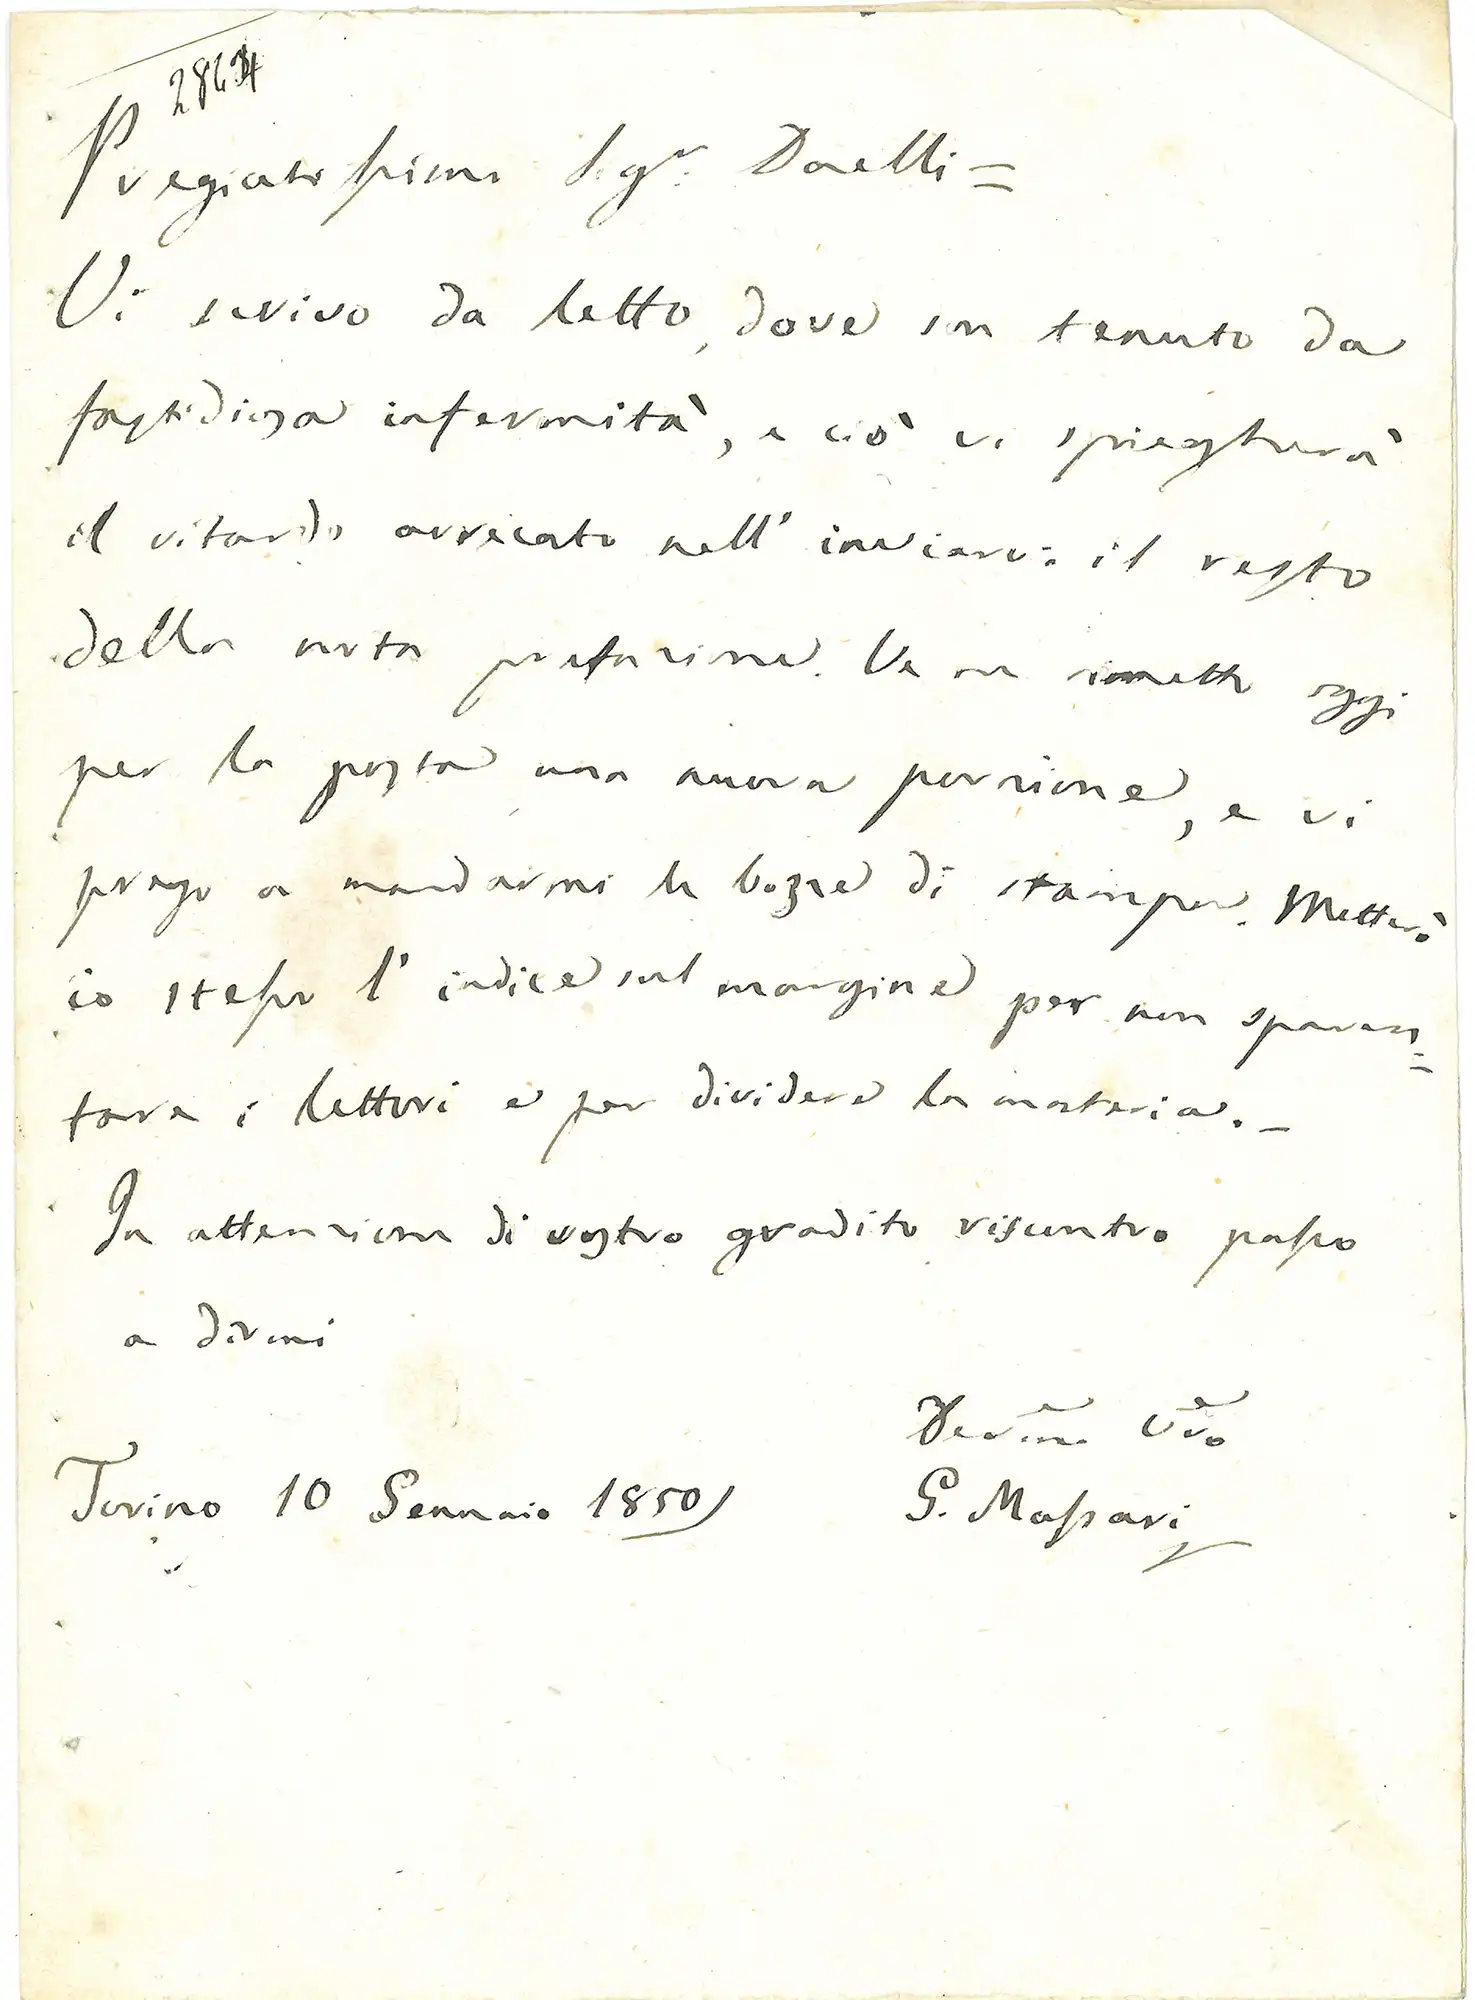 Pregiatissimo Sigr. Daelli =
Vi scrivo da letto, dove son tenuto da
fastidiosa infermità, e ciò vi spiegherà
il ritardo arrecato nell' inviarvi il resto
della nota prefazione. Ve ne rimetto oggi
per la posta una nuova porzione, e vi
prego a mandarmi le bozze di stampa. Metterò
io stesso l' indice sul margine per non spaven=
tare i lettori e per dividere la materia. –
In attenzione di vostro gradito riscontro passo
a dirmi
Vro
Torino 10 Gennaio 1850
G. Massari